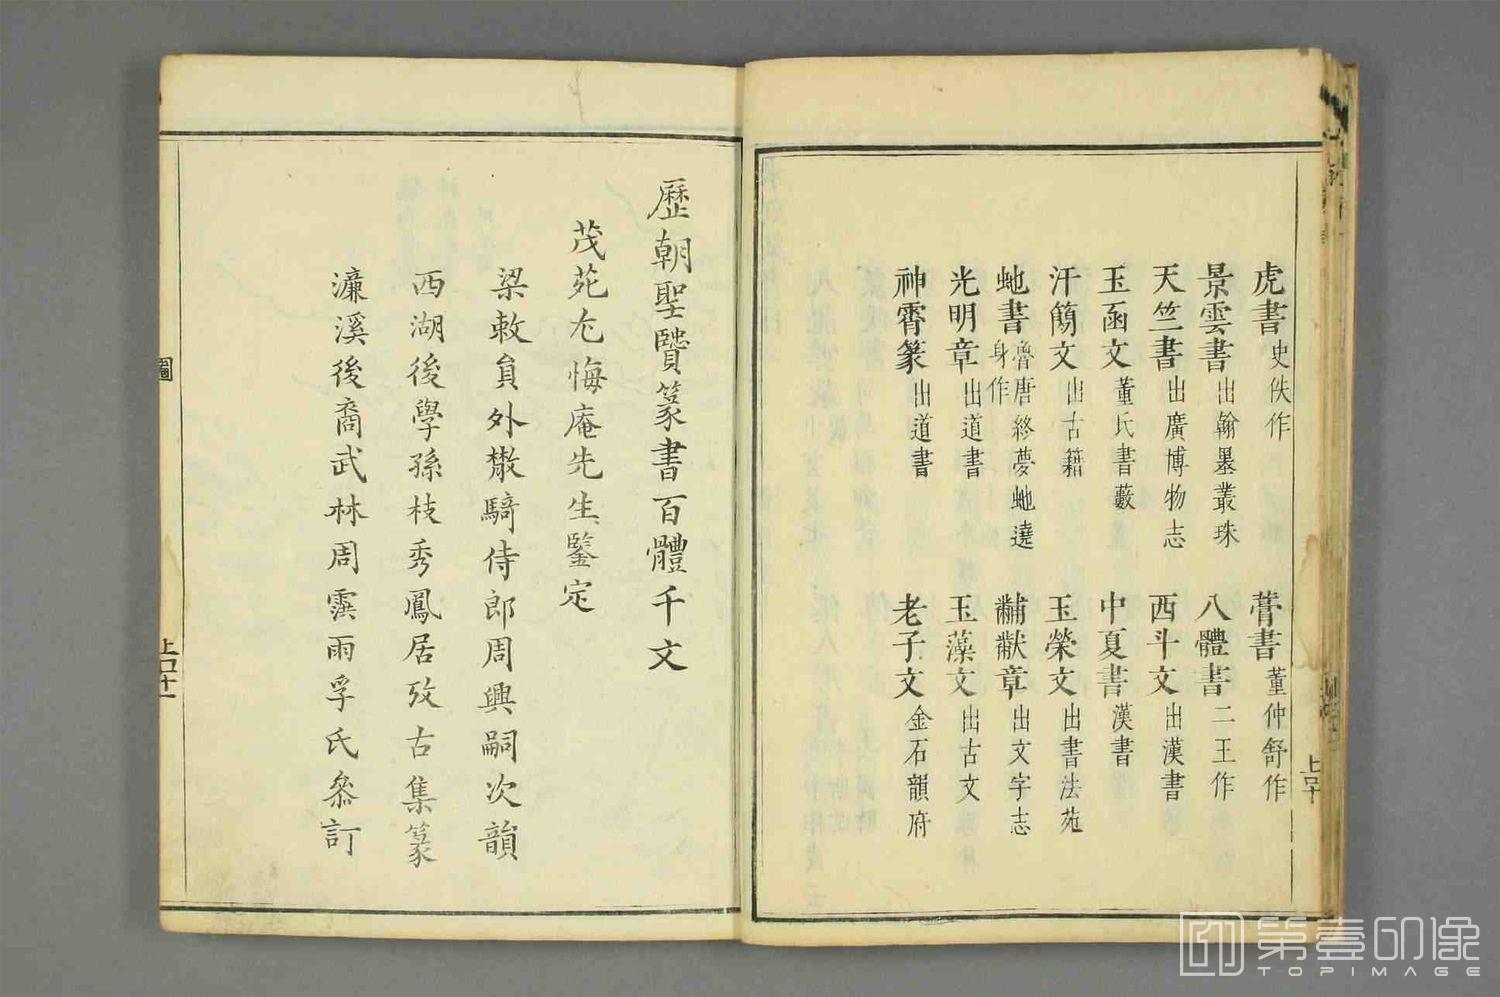 虎書 史佚作 薺書 董仲舒作
景雲書 出翰墨叢珠 八體書 二王作
天竺書 出廣博物志 西斗文 出漢書
玉函文 董氏書藪 中夏書 漢書
汗簡文 出古籍 玉榮文 出書法苑
虵書 魯唐終夢虵遶身作 黼黻章 出文字志
光明章 出道書 玉藻文 出古文
神霄篆 出道書 老子文 金石韻府
上 十
歷朝聖賢篆書百體千文
茂苑尤悔庵先生鑒定
梁敕員外散騎侍郎周興嗣次韻
西湖後學孫枝秀鳳居攷古集篆
濂溪後裔武林周霟雨孚氏叅訂
圖
上 十一
第壹印像
TOPIMAGE